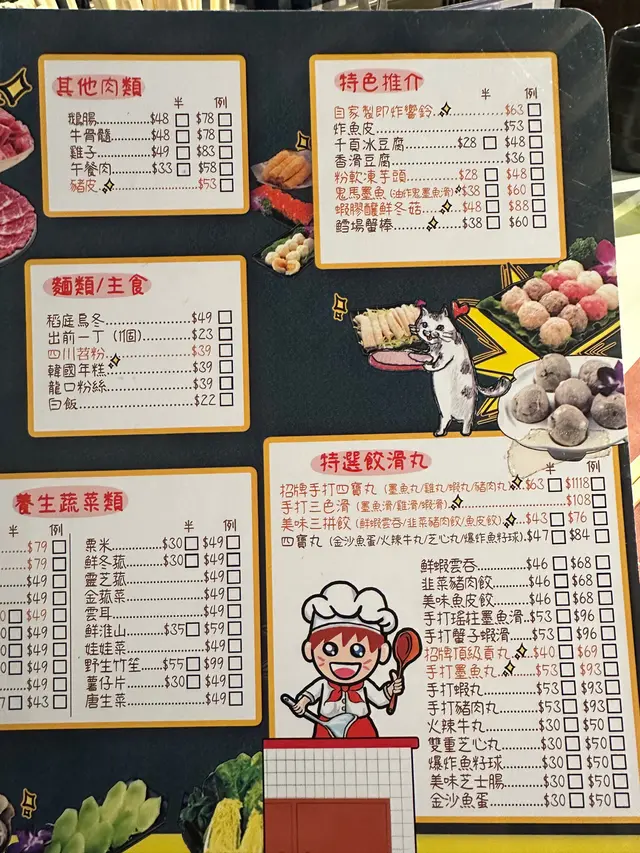 其他肉類
半 例
鵝腸 $48 □ $78 □
牛骨髓 $48 □ $78 □
雞子 $49 □ $83 □
午餐肉 $33 □ $58 □
豬皮 $53 □
特色推介
半 例
自家製即炸響鈴 $63 □
炸魚皮 $53 □
千頁冰豆腐 $28 □ $48 □
香滑豆腐 $36 □
粉軟凍芋頭 $28 □ $48 □
鬼馬墨魚(油炸鬼墨魚滑) $38 □ $60 □
蝦膠釀鮮冬菇 $48 □ $88 □
鱈場蟹棒 $38 □ $60 □
麵類/主食
稻庭烏冬 $49 □
出前一丁(1個) $23 □
四川苕粉 $39 □
韓國年糕 $39 □
龍口粉絲 $39 □
白飯 $22 □
養生蔬菜類
半 例
$79 □
$79 □
$49 □
$49 □
□ $49 □
□ $49 □
□ $49 □
□ $49 □
$49 □
□ $43 □
半 例
粟米 $30 □ $49 □
鮮冬菇 $30 □ $49 □
靈芝菇 $49 □
金菇菜 $49 □
雲耳 $49 □
鮮淮山 $35 □ $59 □
娃娃菜 $49 □
野生竹笙 $55 □ $99 □
薯仔片 $30 □ $49 □
唐生菜 $49 □
特選餃滑丸
半 例
招牌手打四寶丸(墨魚丸/雞丸/蝦丸/豬肉丸) $63 □ $118 □
手打三色滑(墨魚滑/雞滑/蝦滑) $108 □
美味三拼餃(鮮蝦雲吞/韭菜豬肉餃/魚皮餃) $43 □ $76 □
四寶丸(金沙魚蛋/火辣牛丸/芝心丸/爆炸魚籽球) $47 □ $84 □
鮮蝦雲吞 $46 □ $68 □
韭菜豬肉餃 $46 □ $68 □
美味魚皮餃 $46 □ $68 □
手打瑤柱墨魚滑 $53 □ $96 □
手打蟹子蝦滑 $53 □ $96 □
招牌頂級貢丸 $40 □ $69 □
手打墨魚丸 $53 □ $93 □
手打蝦丸 $53 □ $93 □
手打豬肉丸 $53 □ $93 □
火辣牛丸 $30 □ $50 □
雙重芝心丸 $30 □ $50 □
爆炸魚籽球 $30 □ $50 □
美味芝士腸 $30 □ $50 □
金沙魚蛋 $30 □ $50 □